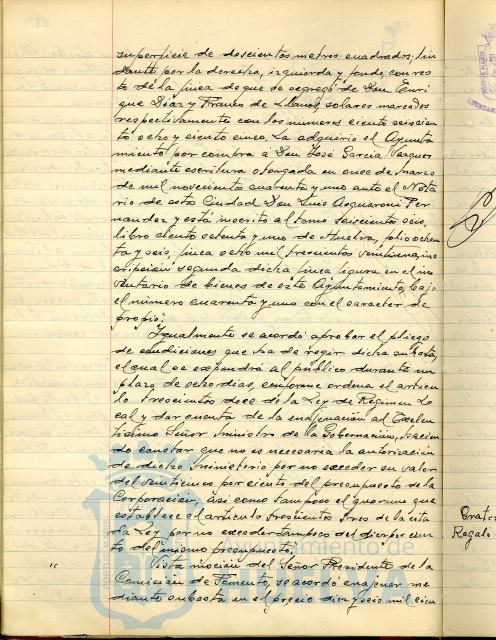 superficie de doscientos metros cuadrados, lin
dante por la derecha, izquierda y fondo, con res
to de la finca de que se segregó de Don Enri
que Díaz y Franco de Llanos, solares marcados
respectivamente con los números ciento seiscien
ocho y ciento cinco. La adquirió el Ayunta
miento por compra á Don José García Vazquez
mediante escritura otorgada en once de marzo
de mil novecientos cuarenta y uno ante el Nota
rio de esta Ciudad Don Luis Acquaroni Fer
nandez y está inscrito al tomo seiscientos seis,
libro ciento setenta y uno de Huelva, folio ochen
ta y seis, finca ocho mil trescientos veintiuna, ins
cripción segunda dicha finca figura en el in
ventario de bienes de este Ayuntamiento, bajo
el número cuarenta y uno con el caracter de
propio.
Igualmente se acordó aprobar el pliego
de condiciones que ha de regir dicha subasta,
el cual se expondrá al público durante un
plazo de ocho dias, conforme ordena el artícu
lo trescientos doce de la Ley de Régimen Lo
cal y dar cuenta de la enajenación al Excelen
tísimo Señor Ministro de la Gobernación, hacien
do constar que no es necesaria la autorización
de dicho Ministerio por no exceder su valor
del veinticinco por ciento del presupuesto de la
Corporación, así como tampoco el quorum que
establece el artículo trescientos tres de la cita
da Ley por no exceder tampoco del diez por cien
to del mismo presupuesto.
Vista moción del Señor Presidente de la
Comisión de Fomento, se acordó enajenar me
diante subasta en el precio diez y seis mil cien
Regalo
Ayuntamiento de